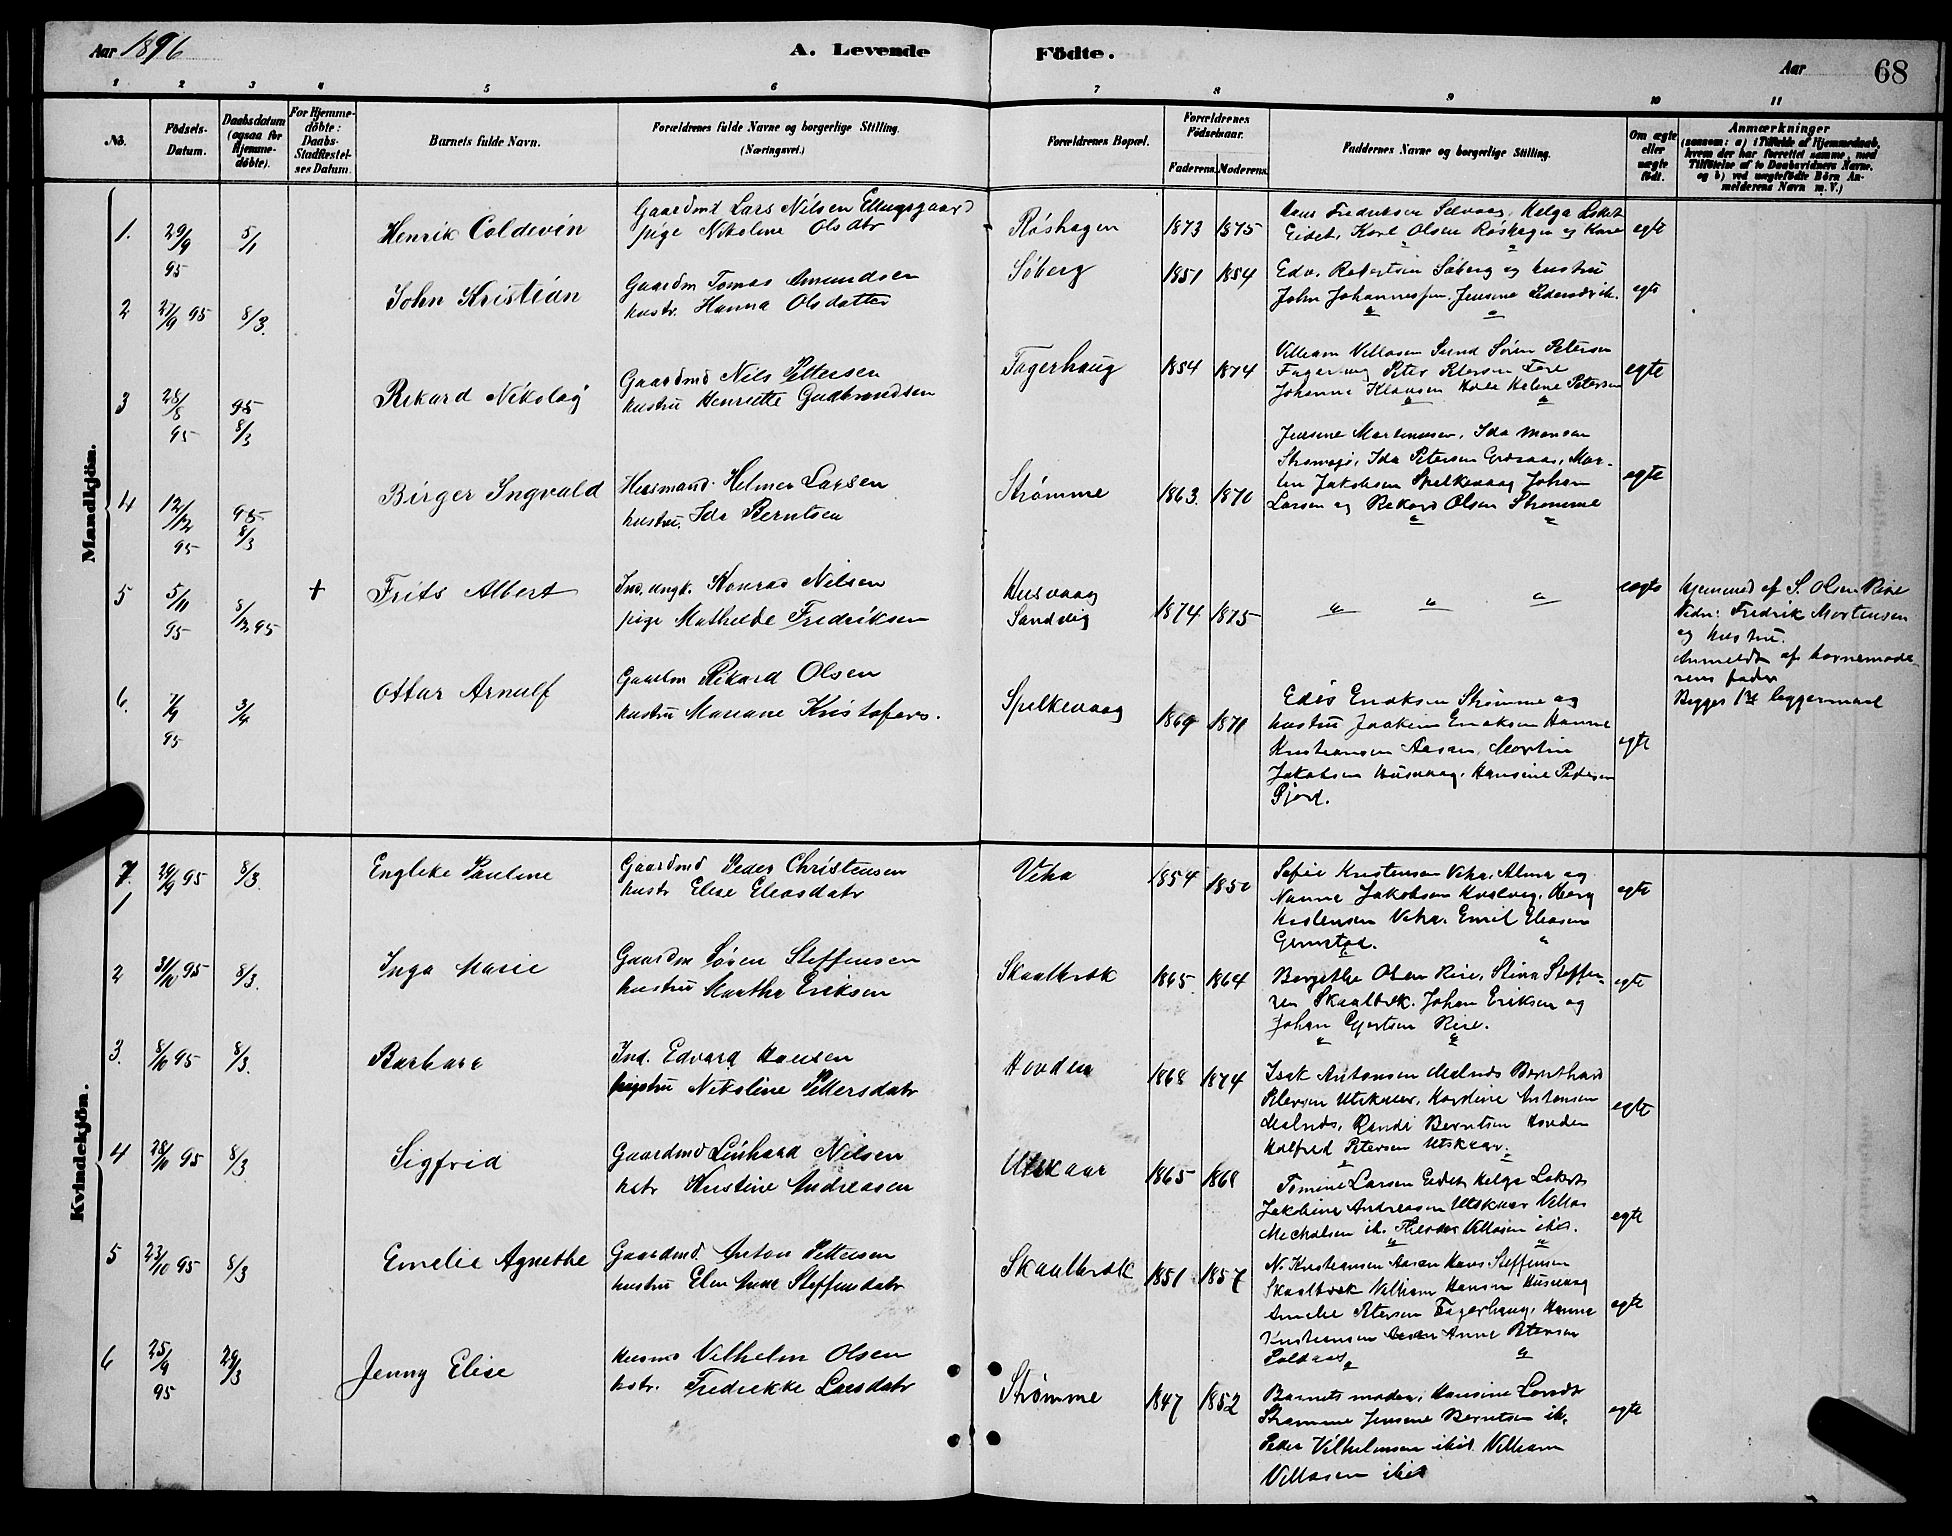 Aar 1896
A. Levende Födte.
Aar
68
1 2 3 4 5 6 7 8 9 10 11
No.
Födsels-Datum.
Daabsdatum (ogsaa for Hjemme-döbte).
For Hjemme-döbte: Daabs-Stadfæstel-ses Datum.
Barnets fulde Navn.
Forældrenes fulde Navne og borgerlige Stilling. (Næringsvei.)
Forældrenes Bopæl.
Forældrenes Födselsaar.
Faderens. Moderens.
Faddernes Navne og borgerlige Stilling.
Om ægte eller uægte födt.
Anmærkninger
(saasom: a) i Tilfælde af Hjemmedaab,
hvem der har forrettet samme, med
Tilföielse af to Daabsvidners Navne,
og b) ved uægtefödte Börn An-
melderens Navn m. V.)
Mandkjön.
1. 29/9 95 5/1 Henrik Coldevin
Gaardmd Lars Nilsen Ellingsgaard
pige Nikoline Olsdtr
Røshagen 1873 1875
Hans Fredriksen Selvaag, Helga
Eidet, Karl Olsen Røshagen og Kone
egte
2 27/9 95 8/3. John Kristian
Gaardm Tomas Amundsen
hustr. Hanna Olsdatter
Søberg 1851 1854
Edv. Robertsen Søberg og hustru
John Johannessen. Jensine Pedersdvik.
egte
3 28/8 95 95 8/3 Rikard Nikolaj
Gaardmd Nils Pettersen
hustru Henriette Gudbrandsen
Fagerhaug 1854 1874
Villiam Villasen Sund Søren Petersen
Fagerhaug Peter Petersen Tore
Johanna Klausen Helene Petersen
egte
4 12/12 95 95 8/3 Birger Ingvald
Husmand. Helmer Larsen
hustru. Ida Berntsen
Strømme 1863. 1870
Jensine Martinussen, Ida Monsen
Ida Petersen Mor-
ten Jakobsen Spelkevaag Johan
Larsen og Rikard Olsen Strømme
egte
5 5/11 95 8/12 95 + Frits Albert
Ind. ungk. Konrad Nilsen
pige Mathilde Fredriksen
Husvaag
Sandvig 1874 1875
" " "
uegte
Hjemmed af S. Olsen Rise
Vidn: Fredrik Mortensen
og hustru.
Anmeldt af barnemode-
rens fader
6. 7/9 95 3/4 Ottar Arnulf
Gaardm Rikard Olsen
hustru Mariane Kristofers.
Spelkevaag 1869 1871
Edis Eriksen Strømme og
hustru Joakim Eriksen Hanna
Kristiansen Aasan, Martin
Jakobsen Husvaag, Hansine Pedersen
Fjord.
egte
Kvindekjön.
7. 1 29/9 95 8/3. Englike Pauline
Gaardmd Peder Christensen
hustr Elise Eleasdatr
Vika 1854 1850
Sofie Kristensen Vika, Alma og
Nanna Jakobsen
Kristensen Vika. Emil Eleasen
Grimstad.
egte
2 31/10 95 8/3. Inga Marie
Gaardm Søren Steffensen
hustru Martha Eriksen
Skaalbrek 1865 1864
Bergithe Olsen Rise, Stina Steffen-
sen Skaalbrek. Johan Eriksen og
Johan Gjertsen Rise.
egte
3. 8/10 95 8/3. Barbara
Ind. Edvard Hansen
hustru Nikoline Pettersdatr
Hovden 1868 1874
Isak Antonsen Malnes Bernthard
Petersen Utskaar, Karoline Antonsen
Malnes, Randi Berntsen Hovden
Halfred Petersen Utskaar.
egte
4 28/10 95 8/3 Sigfrid
Gaardmd Linhard Nilsen
hstr Kristine Andreasen
Utskaar 1865 1868
Tomine Larsen Eidet, Helga
Jakobine Andreasen Utskaar Villas
Mechalsen ib. Villasen ibid.
egte
5 23/10 95 8/3 Emelie Agnethe
Gaardmd Anton Pettersen
hustru Elen Anne Steffensdatr
Skaalbrekk 1851 1857
N. Kristiansen Aasan Hans Steffensen
Skaalbrek Villiam Hansen Husvaag
Amelie Petersen Fagerhaug, Hanna
Kristiansen Anne Petersen
egte
6 25/9 95 29/3 Jenny Elise
Husmd Vilhelm Olsen
hstr. Fredrikke Larsdatr
Strømme 1847 1852
Barnets moder, Hansine Larsdtr
Strømme Jensine Berntsen ib.
Peder Vilhelmsen ibid. Villiam
Villasen ibid
egte